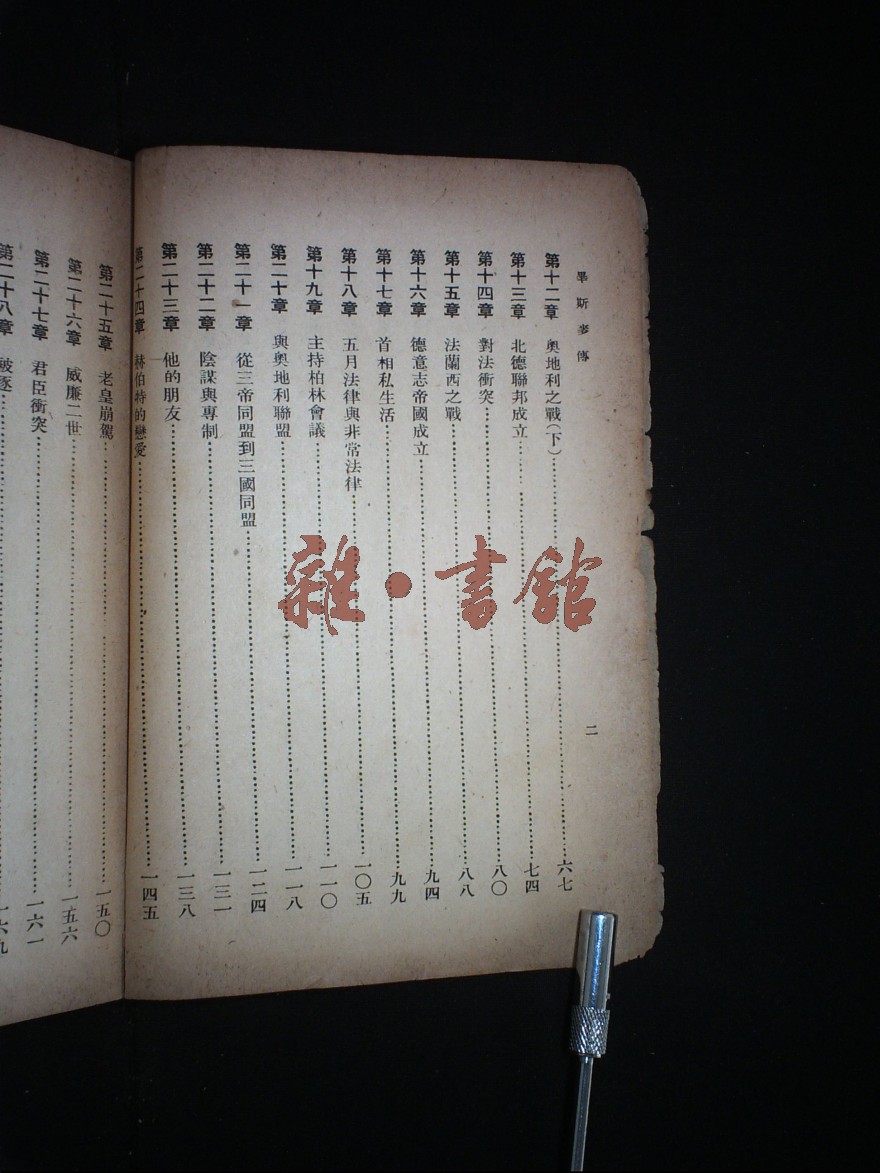 畢斯麥傳
二
第十二章 奧地利之戰(下)……六七
第十三章 北德聯邦成立……七四
第十四章 對法衝突……八〇
第十五章 法蘭西之戰……八八
第十六章 德意志帝國成立……九四
第十七章 首相私生活……九九
第十八章 五月法律與非常法律……一〇五
第十九章 主持柏林會議……一一〇
第二十章 與奧地利聯盟……一一八
第二十一章 從三帝同盟到三國同盟……一二四
第二十二章 陰謀與專制……一三一
第二十三章 他的朋友……一三八
第二十四章 赫伯特的戀愛……一四五
第二十五章 老皇崩駕……一五〇
第二十六章 威廉二世……一五六
第二十七章 君臣衝突……一六一
第二十八章 被逐……一六九
雜·書館